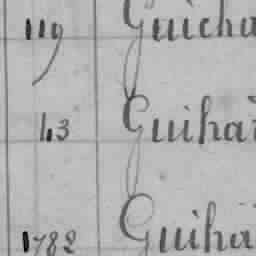 119 Guicha
43 Guihar
1782 Guiha